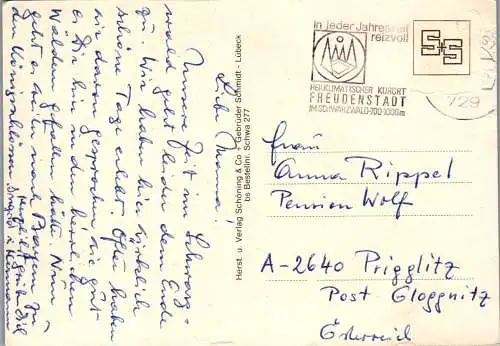 Liebe Mama!
Unsere Zeit im Schwarz-
wald geht leider dem Ende
zu. Wir haben hier wirklich
schöne Tage erlebt. Oft haben
wir davon gesprochen, wie gut
es Dir hier in den herrlichen
Wäldern gefallen hätte. Nun
geht es weiter nach Bayern zu
den Königsschlössern.
Herzlich grüßt Dich
Ingrid u. Hermann
Herst. u. Verlag Schöning & Co · Gebrüder Schmidt - Lübeck
bs Bestellnr. Schwa 277
in jeder Jahreszeit
reizvoll
HEILKLIMATISCHER KURORT
FREUDENSTADT
IM SCHWARZWALD·700-1000m
S+S
729
Frau
Anna Rippel
Pension Wolf
A-2640 Prigglitz
Post Gloggnitz
Österreich